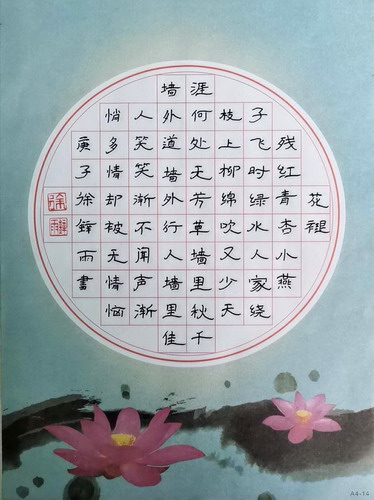 花褪
残红青杏小燕
子飞时绿水人家绕
枝上柳绵吹又少天
涯何处无芳草墙里秋千
墙外道墙外行人墙里佳
人笑笑渐不闻声渐
悄多情却被无情恼
庚子徐書
徐
A4-14